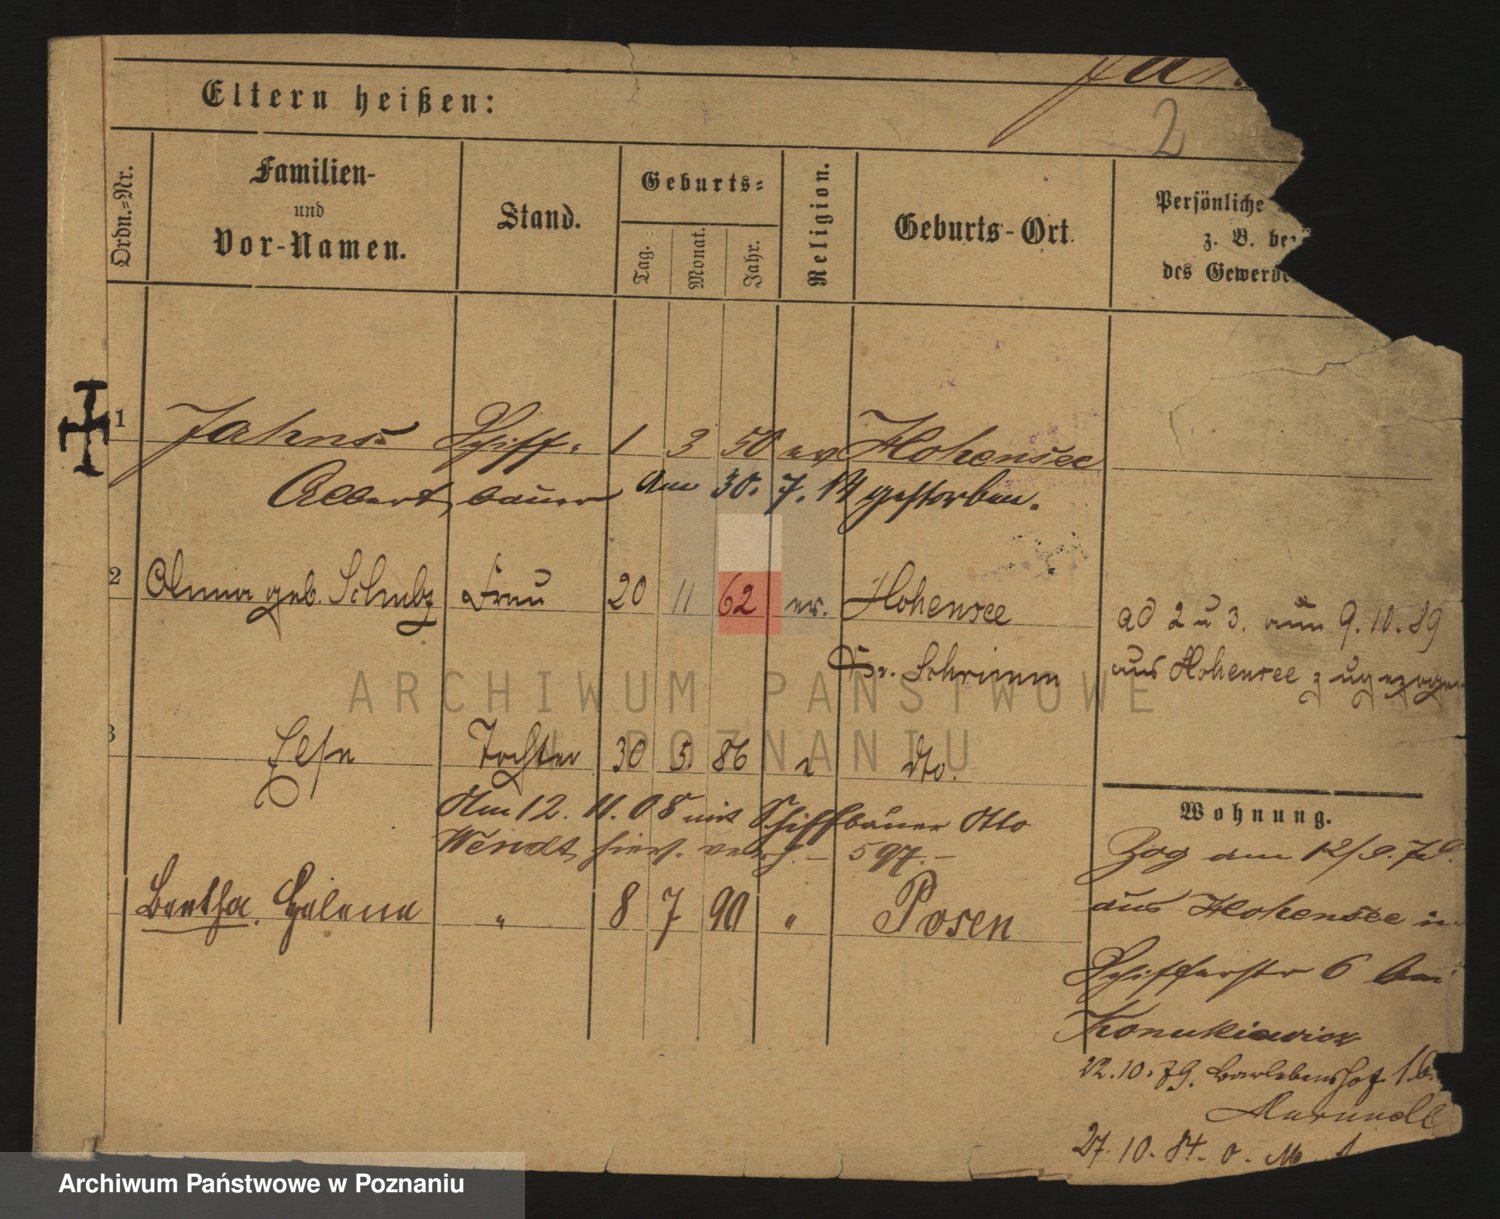 2
Eltern heißen:
Ordn.-Nr.
Familien-
und
Vor-Namen.
Stand.
Geburts-
Tag.
Monat.
Jahr.
Religion.
Geburts-Ort.
Persönliche
z. B. be
des Gewerbe
1 Jahns Schiff- 1 3 50 ev Hohensee
Albert bauer am 30. 7. 14 gestorben.
2 Anna geb. Schulz Frau 20 11 62 ev. Hohensee
Kr. Schrimm
ad 2 u 3. am 9.10.89
aus Hohensee zugezogen
3 Else Tochter 30 5. 86 dto.
Am 12. 11. 08 mit Schiffbauer Otto
Wendt hies. verh. – 597. –
Bertha. Helene " 8 7 90 " Posen
Wohnung.
Zog am 12/9. 79.
aus Hohensee in
Schifferstr 6 bei
22.10.79.
27.10.84.
ARCHIWUM PAŃSTWOWE
W POZNANIU
Archiwum Państwowe w Poznaniu